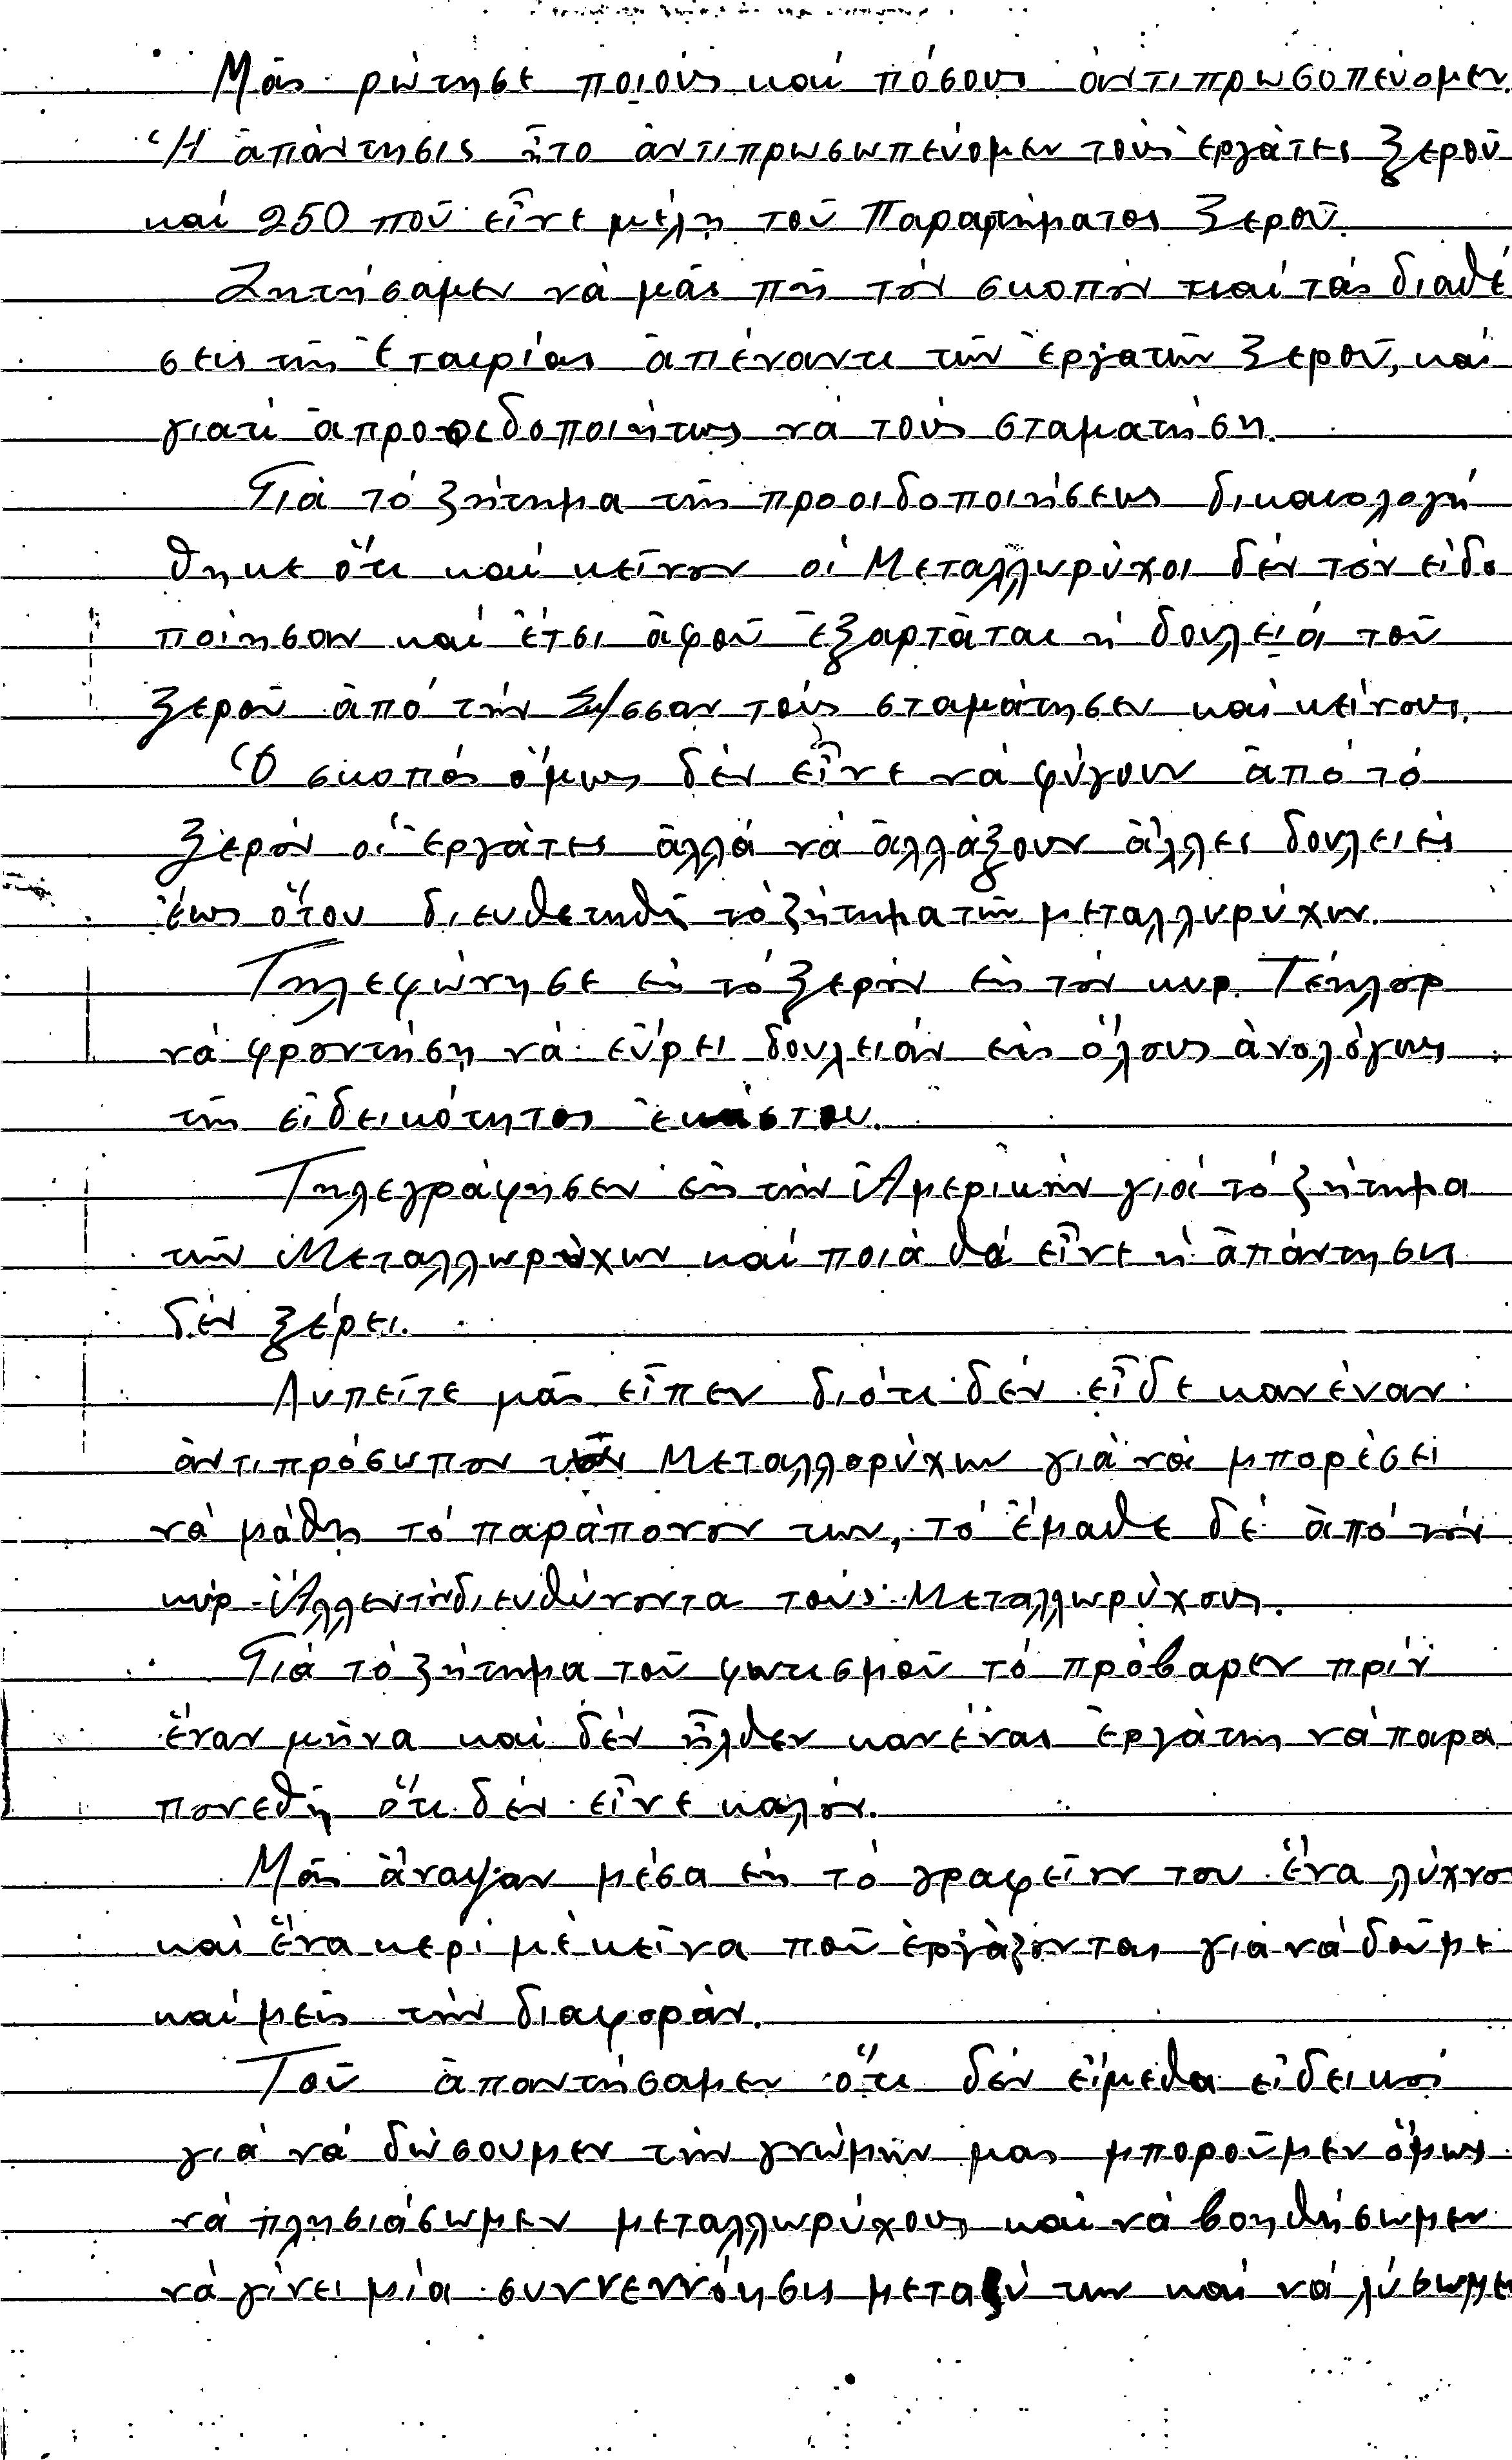 Μᾶς ρώτησε ποιούς καί πόσους ἀντιπρωσοπεύομεν.
Ἡ ἀπάντησις ἦτο ἀντιπρωσωπεύομεν τούς ἐργάτες ξεροῦ
καί 250 ποῦ εἶνε μέλη τοῦ Παραρτήματος Ξεροῦ.
Ζητήσαμεν νά μᾶς πῆ τόν σκοπόν καί τάς διαθέ
σεις τῆς Ἑταιρίας ἀπέναντι τῶν ἐργατῶν Ξεροῦ, καί
γιατί ἀπροειδοποιήτως νά τούς σταματήση.
Γιά τό ζήτημα τῆς προοιδοποιήσεως δικαιολογή
θηκε ὅτι καί κεῖνον οἱ Μεταλλωρύχοι δέν τόν εἰδο
ποίησαν καί ἔτσι ἀφοῦ ἐξαρτᾶται ἡ δουλειά τοῦ
ξεροῦ ἀπό τήν Σκ/σσαν τούς σταμάτησεν καί κείνους.
Ὁ σκοπός ὅμως δέν εἶνε νά φύγουν ἀπό τό
ξερόν οἱ ἐργάτες ἀλλά νά ἀλλάξουν ἄλλες δουλειές
ἕως ὅτου διευθετηθῆ τό ζήτημα τῶν μεταλλυρύχων.
Τηλεφώνησε εἰς τό ξερόν εἰς τόν κυρ. Τέηλορ
νά φροντήση νά εὕρει δουλειάν εἰς ὅλους ἀναλόγως
τῆς εἰδεικότητος ἑκάστου.
Τηλεγράφησεν εἰς τήν Ἀμερικήν γιά τό ζήτημα
τῶν Μεταλλωρύχων καί ποιά θά εἶνε ἡ ἀπάντησις
δέν ξέρει.
Λυπεῖτε μᾶς εἶπεν διότι δέν εἶδε κανέναν
ἀντιπρόσωπον τῶν Μεταλλορύχων γιά νά μπορέσει
νά μάθη τό παράπονον των, τό ἔμαθε δέ ἀπό τόν
κύρ Ἄλλεν τόν διευθύνοντα τούς Μεταλλωρύχους.
Γιά τό ζήτημα τοῦ φωτισμοῦ τό πρόβαρεν πρίν
ἕναν μῆνα καί δέν ἦλθεν κανένας ἐργάτης νά παρα
πονεθῆ ὅτι δέν εἶνε καλόν.
Μᾶς ἄναψαν μέσα εἰς τό γραφεῖον του ἕνα λύχνο
καί ἕνα κερί μέ κεῖνα ποῦ ἐργάζονται γιά νά δοῦμε
καί μεῖς τήν διαφοράν.
Τοῦ ἀπαντήσαμεν ὅτι δέν εἴμεθα εἰδεικοί
γιά νά δώσουμεν τήν γνώμην μας μποροῦμεν ὅμως
νά πλησιάσωμεν μεταλλωρύχους καί νά βοηθήσωμεν
νά γίνει μία συννεννόησις μεταξύ των καί νά λύσωμε